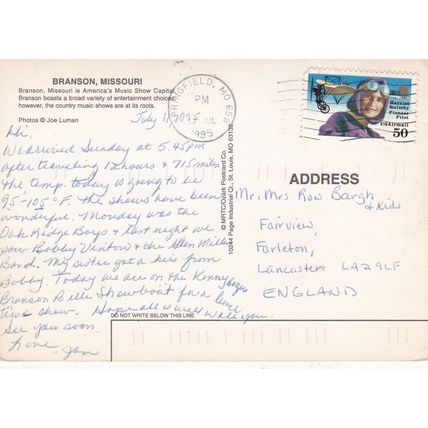 BRANSON, MISSOURI
Branson, Missouri is America's Music Show Capital.
Branson boasts a broad variety of entertainment choices,
however, the country music shows are at its roots.
Photos © Joe Luman
SPRINGFIELD, MO 658
PM
JUL
1995
Harriet
Quimby
Pioneer
Pilot
USAirmail
50
July 1995
Hi,
We arrived Sunday at 5:45PM
after traveling 12 hours & 715 miles
the temp. today is going to be
95-105°F. The shows have been
wonderful. Monday was the
Oak Ridge Boys & last night we
saw Bobby Vinton & the Glen Miller
Band. My sister got a kiss from
Bobby. Today we are on the
Branson Belle Showboat for a lunch
time show. Hope all is well with you.
See you soon.
Love
Jan
© MRTG/Ozark Postcard Co.
10244 Page Industrial Ct., St. Louis, MO 63132
ADDRESS
Mr. Mrs Ron Bargh
& Kids
Fairview,
Farleton,
Lancaster LA2 9LF
ENGLAND
DO NOT WRITE BELOW THIS LINE